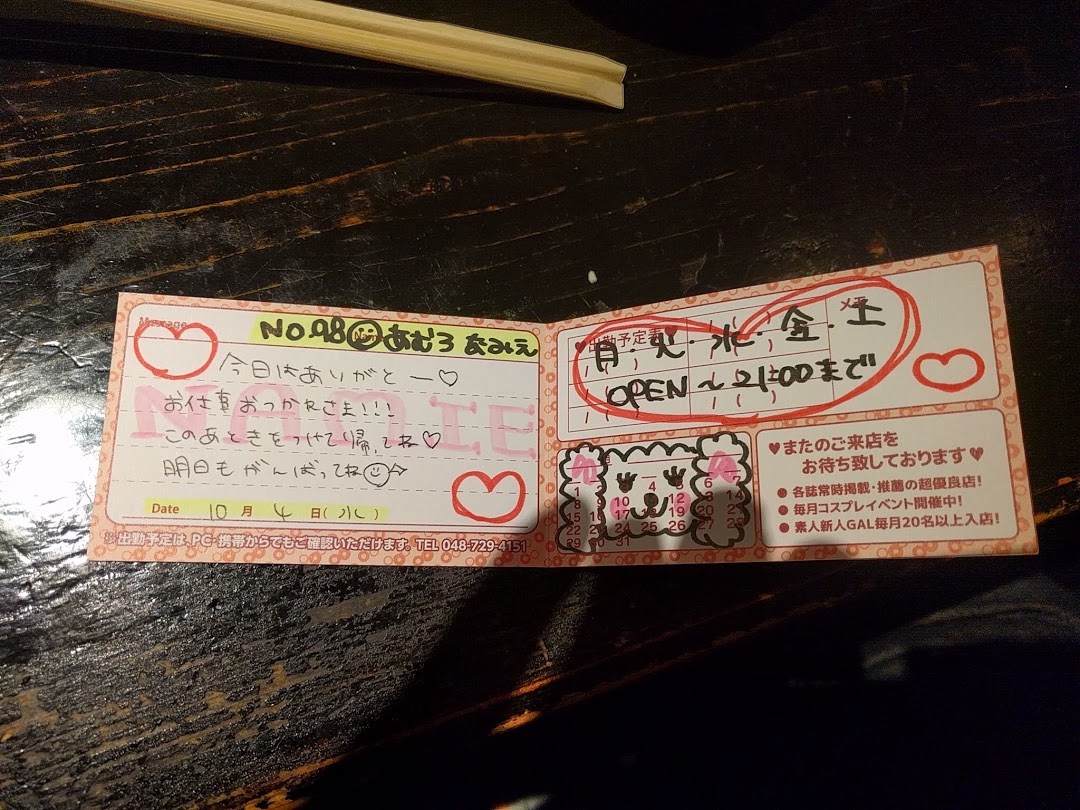 Message
NO.98 あむろ なみえ
今日はありがとー♡
お仕事おつかれさま!!!
このあときをつけて帰ってね♡
明日もがんばってね
NAMIE
Date 10月4日(水)
※出勤予定は、PC・携帯からでもご確認いただけます。TEL 048-729-4151
♥出勤予定表
月・火・水・金・土
OPEN〜21:00まで
1 2 3 4 5 6 7
8 10 12 14
15 16 17 18 19 20 21
22 23 24 25 26 27 28
29 30 31
♥またのご来店を
お待ち致しております♥
●各誌常時掲載・推薦の超優良店!
●毎月コスプレイベント開催中!
●素人新人GAL毎月20名以上入店!